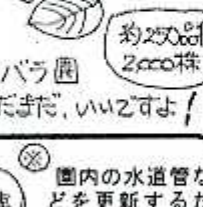 約250品種
2,000株
バラ園
だまだ、いいですよ!
※
園内の水道管な
どを更新するた